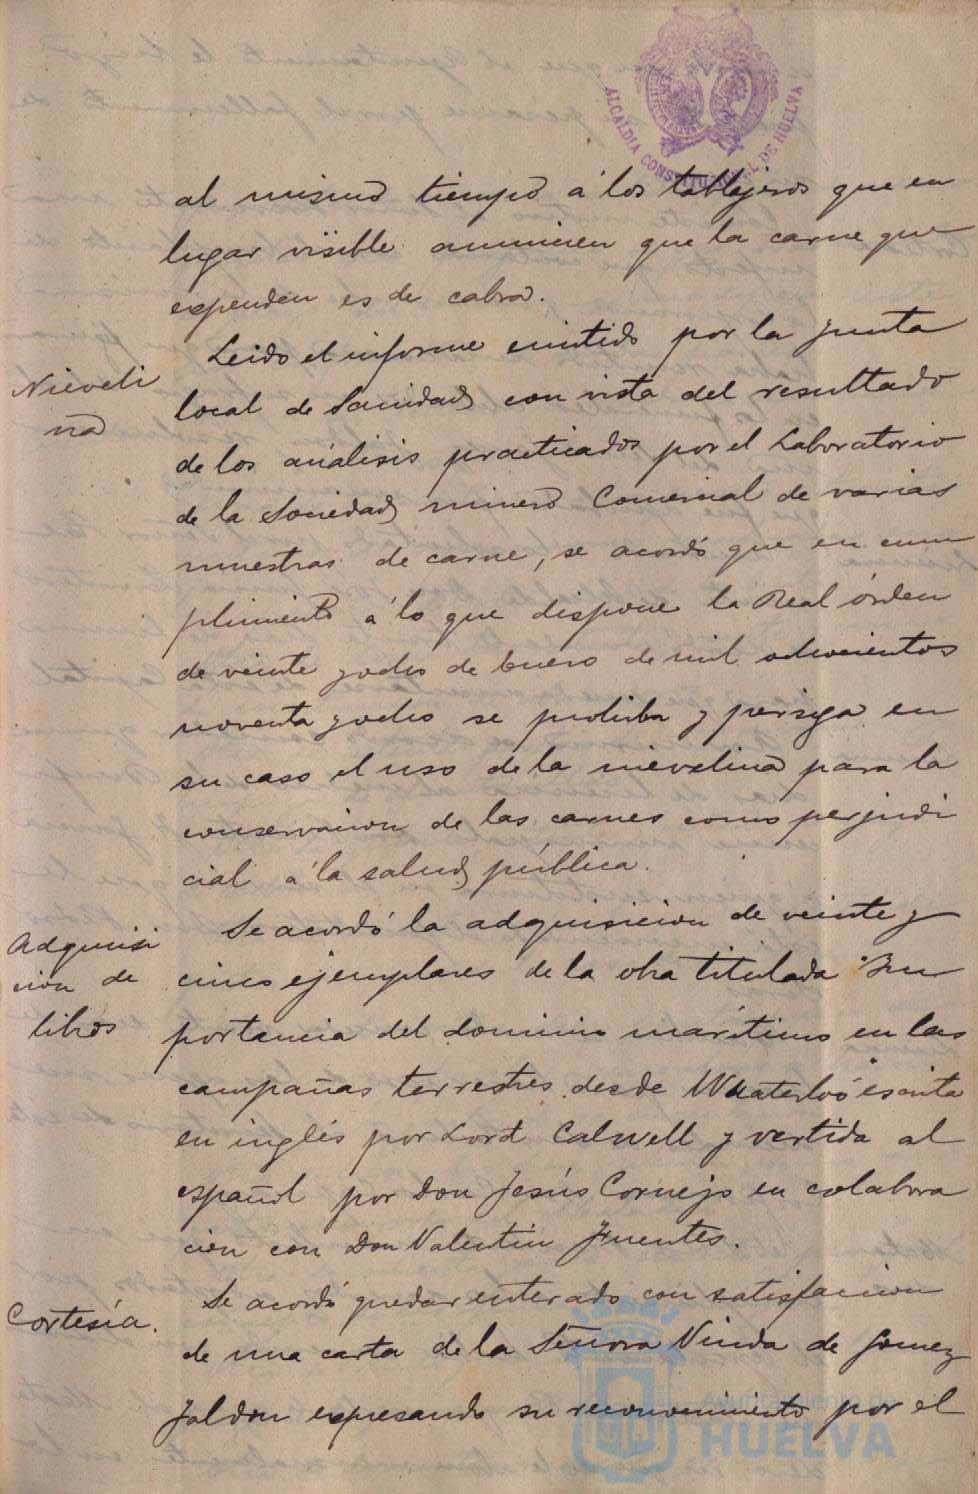 ALCALDIA CONSTITUCIONAL DE HUELVA
al mismo tiempo á los tablajeros que en
lugar visible anuncien que la carne que
expenden es de cabra.
Nieveli
na
Leido el informe emitido por la junta
local de Sanidad, con vista del resultado
de los análisis practicados por el Laboratorio
de la Sociedad minero Comercial de varias
muestras de carne, se acordó que en cum
plimiento á lo que dispone la Real órden
de veinte y ocho de Enero de mil ochocientos
noventa y ocho se prohiba y persiga en
su caso el uso de la nievelina para la
conservacion de las carnes como perjudi
cial á la salud pública.
Adquisi
cion de
libros
Se acordó la adquisicion de veinte y
cinco ejemplares de la obra titulada "Im
portancia del dominio marítimo en las
campañas terrestres desde Wuaterloó" escrita
en inglés por Lord Calwell y vertida al
español por Don Jesús Cornejo en colabora
cion con Don Valentin Fuentes.
Cortesía.
Se acordó quedar enterado con satisfaccion
de una carta de la Señora Viuda de Gomez
Jaldon expresando su reconocimiento por el
Ayuntamiento de
HUELVA